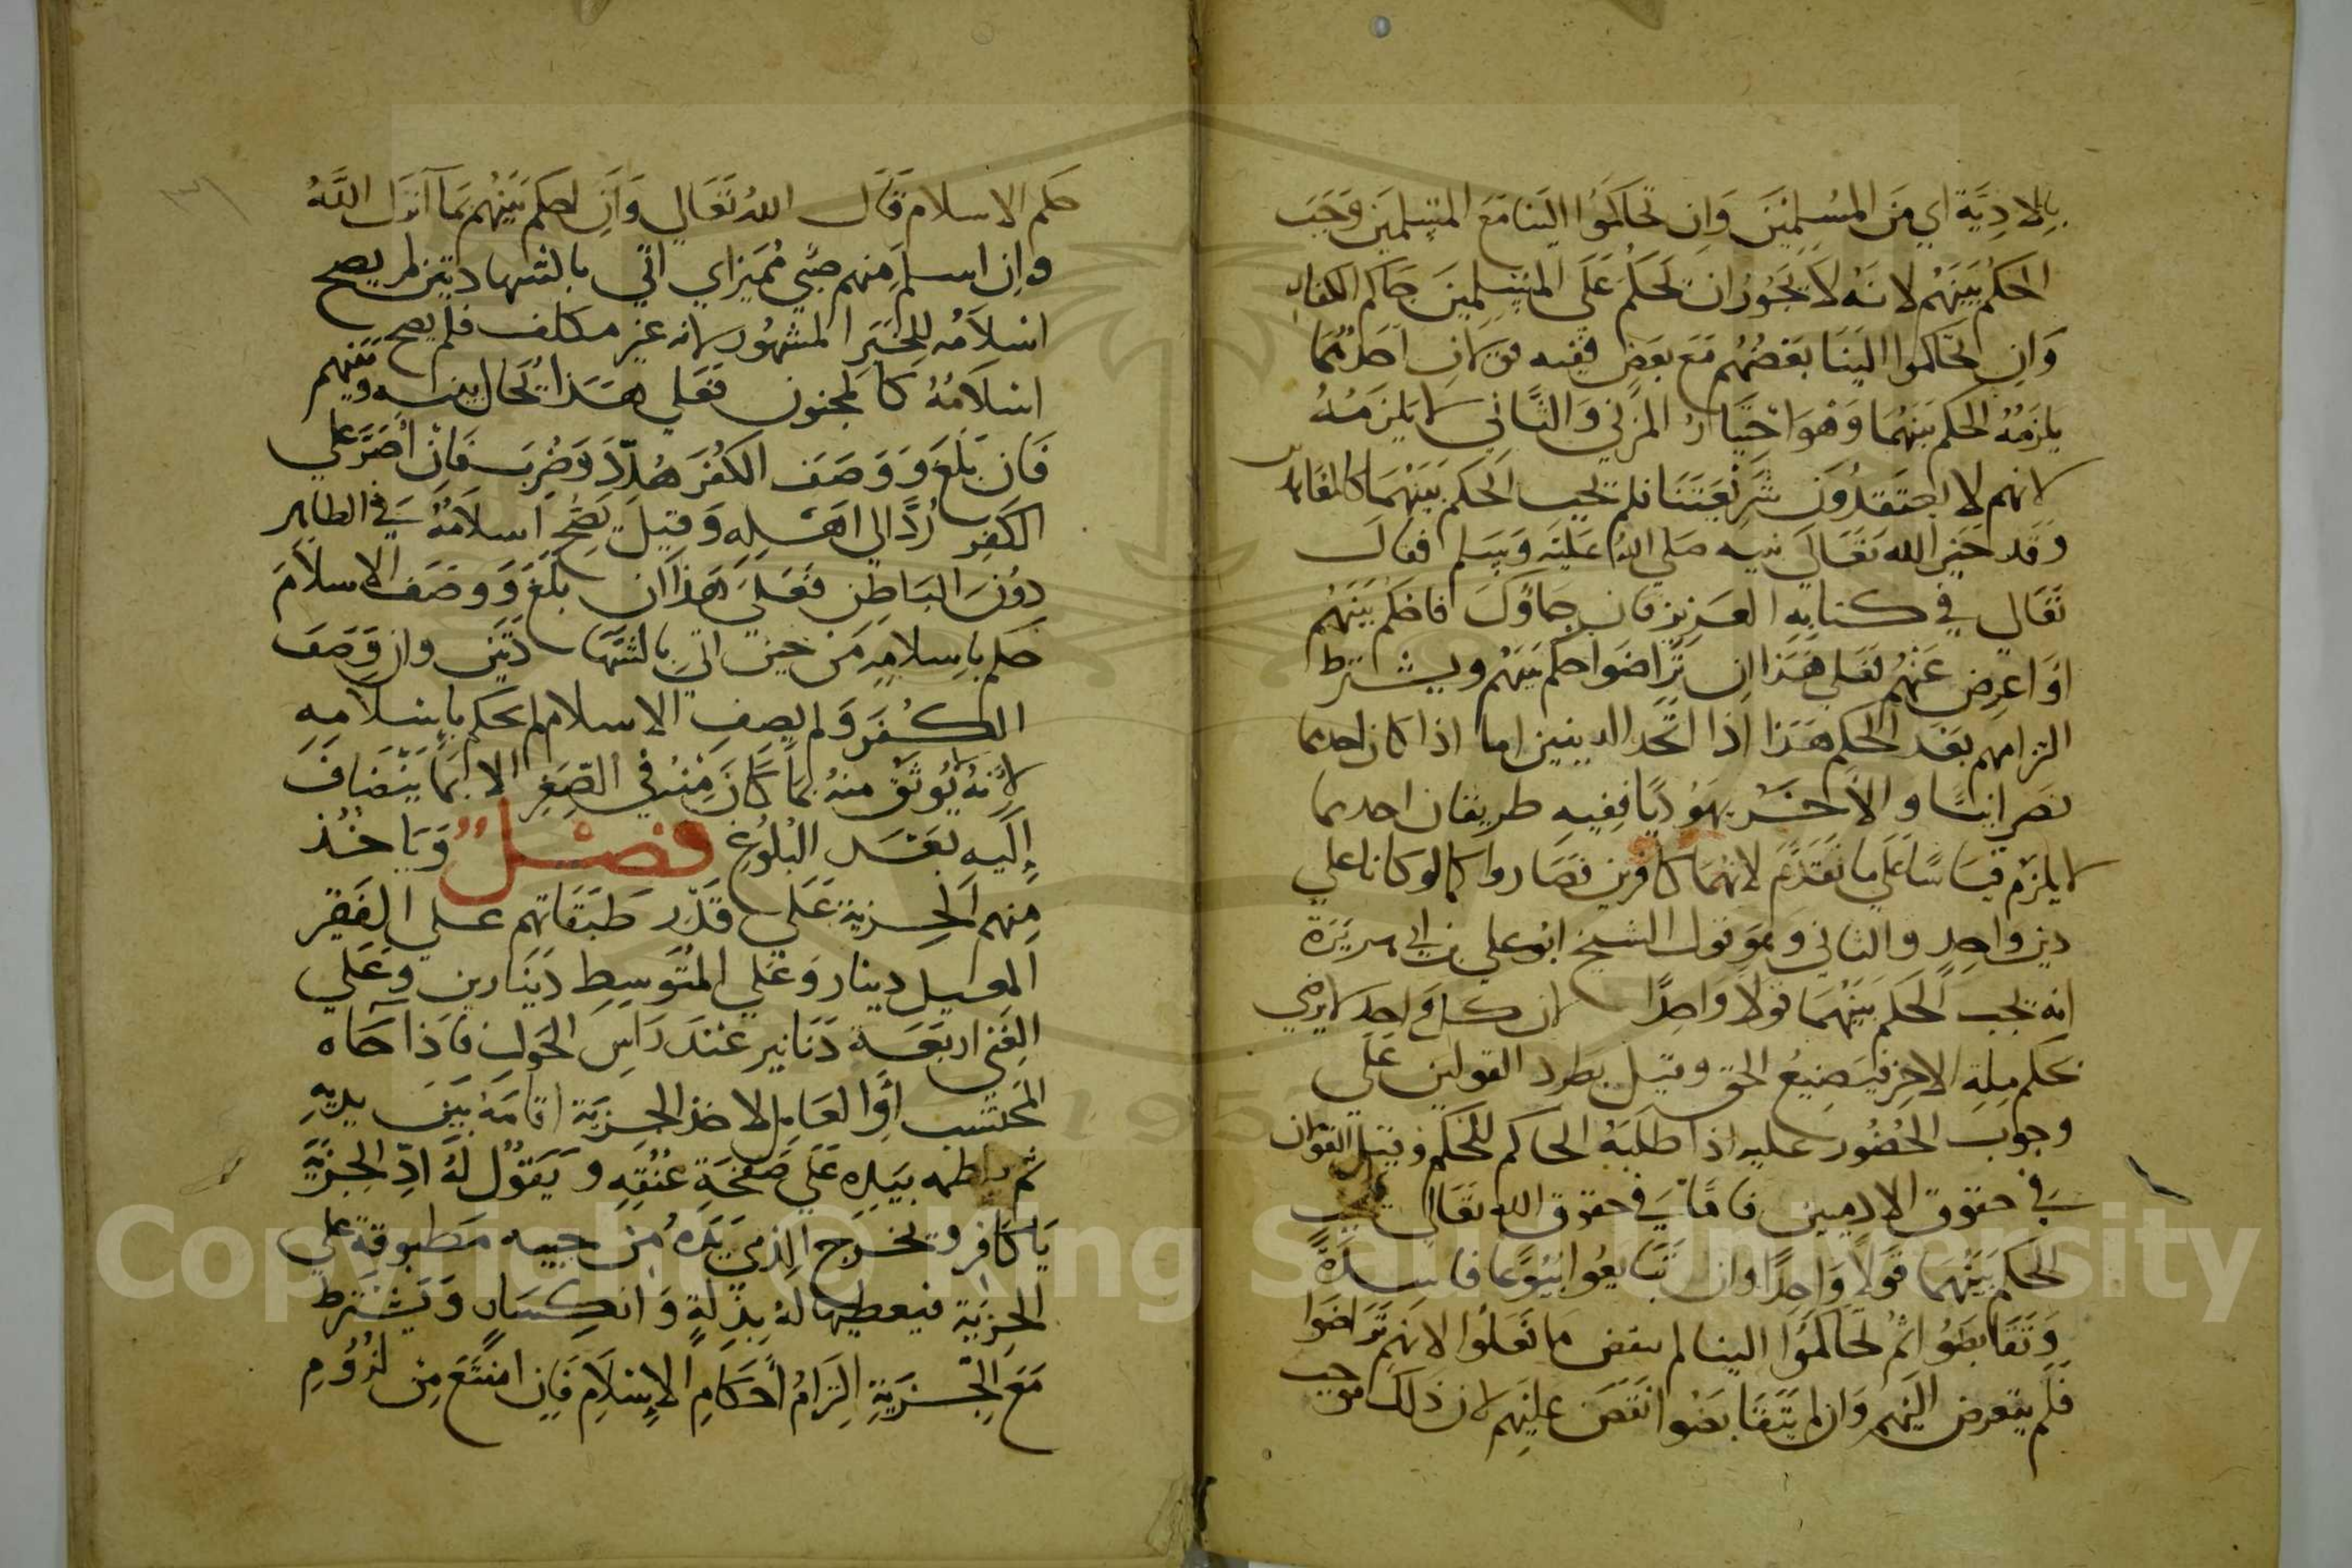 بالاذية اي من المسلمين وان تحاكموا الينا مع المسلمين وجب
الحكم بينهم لانه لا يجوز ان يحكم على المسلمين حاكم الكفار
وان تحاكموا الينا بعضهم مع بعض ففيه قولان احدهما
يلزمه الحكم بينهما وهو اختيار المزني والثاني لا يلزمه
لانهم لا يعتقدون شريعتنا فلم يجب الحكم بينهما
وقد خير الله تعالى نبيه صلى الله عليه وسلم فقال
تعالى في كتابه العزيز فان جاؤك فاحكم بينهم
او اعرض عنهم فعلى هذا ان تراضوا حكم بينهم ويشترط
التزامهم بعد الحكم هذا اذا اتحد الدينين اما اذا كان احدهما
نصرانيا والآخر يهوديا ففيه طريقان احدهما
لا يلزم قياسا على ما تقدم لانهما كافرين فصاروا كما لو كانا على
دين واحد والثاني وهو قول الشيخ ابو علي بن ابي هريرة
انه يجب الحكم بينهما قولا واحدا لان كل واحد لا يرضى
بحكم ملة الاخر فيضيع الحق وقيل بطرد القولين على
وجوب الحضور عليه اذا طلبه الحاكم للحكم وقيل القولان
في حقوق الادميين فاما في حقوق الله تعالى يجب
الحكم بينهما قولا واحدا وان تبايعوا بيوعا فاسدة
وتقابضوا ثم تحاكموا الينا لم ينقض ما فعلوا لانهم تراضوا
فلم يتعرض اليهم وان لم يتقابضوا انتقض عليهم لان ذلك موجب
حكم الاسلام قال الله تعالى وان احكم بينهم بما انزل الله
وان اسلم منهم صبي مميز اي اتى بالشهادتين لم يصح
اسلامه للخبر المشهور لانه غير مكلف فلم يصح
اسلامه كالمجنون فعلى هذا يحال بينه وبينهم
فان بلغ ووصف الكفر هدد وضرب فان اصر على
الكفر رد الى اهله وقيل يصح اسلامه في الظاهر
دون الباطن فعلى هذا ان بلغ ووصف الاسلام
حكم باسلامه من حين اتى بالشهادتين وان وصف
الكفر ولم يصف الاسلام لم يحكم باسلامه
لانه لا يوثق منه بما كان منه في الصغر الا بما ينضاف
إليه بعد البلوغ فصل وياخذ
منهم الجزية على قدر طبقاتهم على الفقير
المعيل دينار وعلى المتوسط دينارين وعلى
الغني اربعة دنانير عند راس الحول فاذا جاه
المحتسب أو العامل لاخذ الجزية اقامه بين يديه
ثم يلطمه بيده على صفحة عنقه ويقول له ادّ الجزية
يا كافر ويخرج الذمي يده من جيبه مطبوقة على
الجزية فيعطيها له بذلة وانكسار ويشترط
مع الجزية التزام أحكام الإسلام فإن امتنع من لزوم